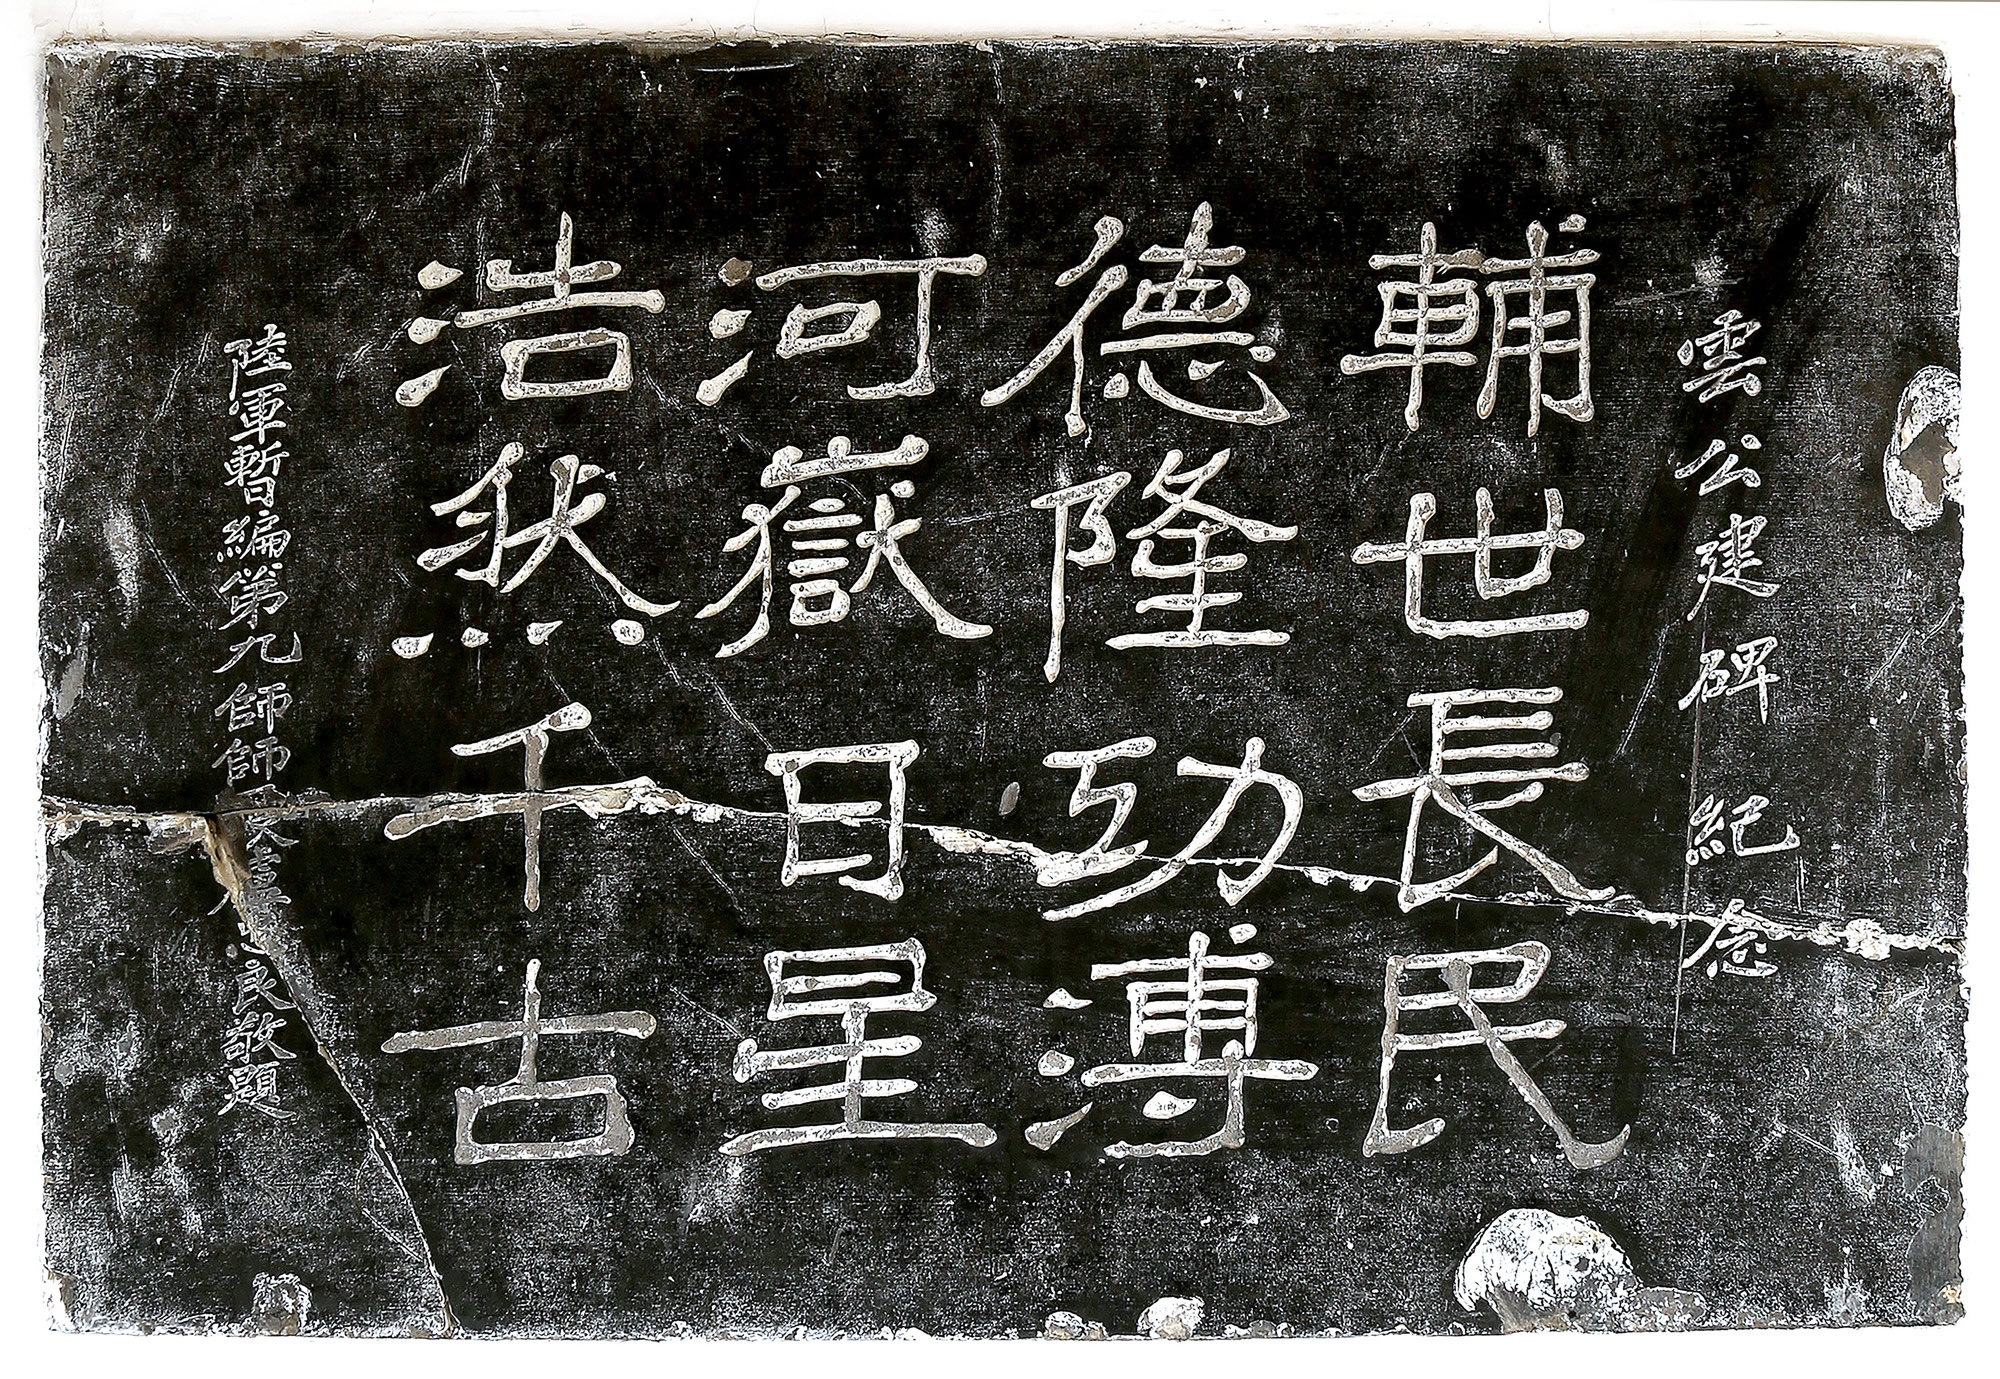 雲公建碑紀念
輔世長民
德隆功溥
河嶽日星
浩然千古
陸軍暫編第九師師長
良敬題